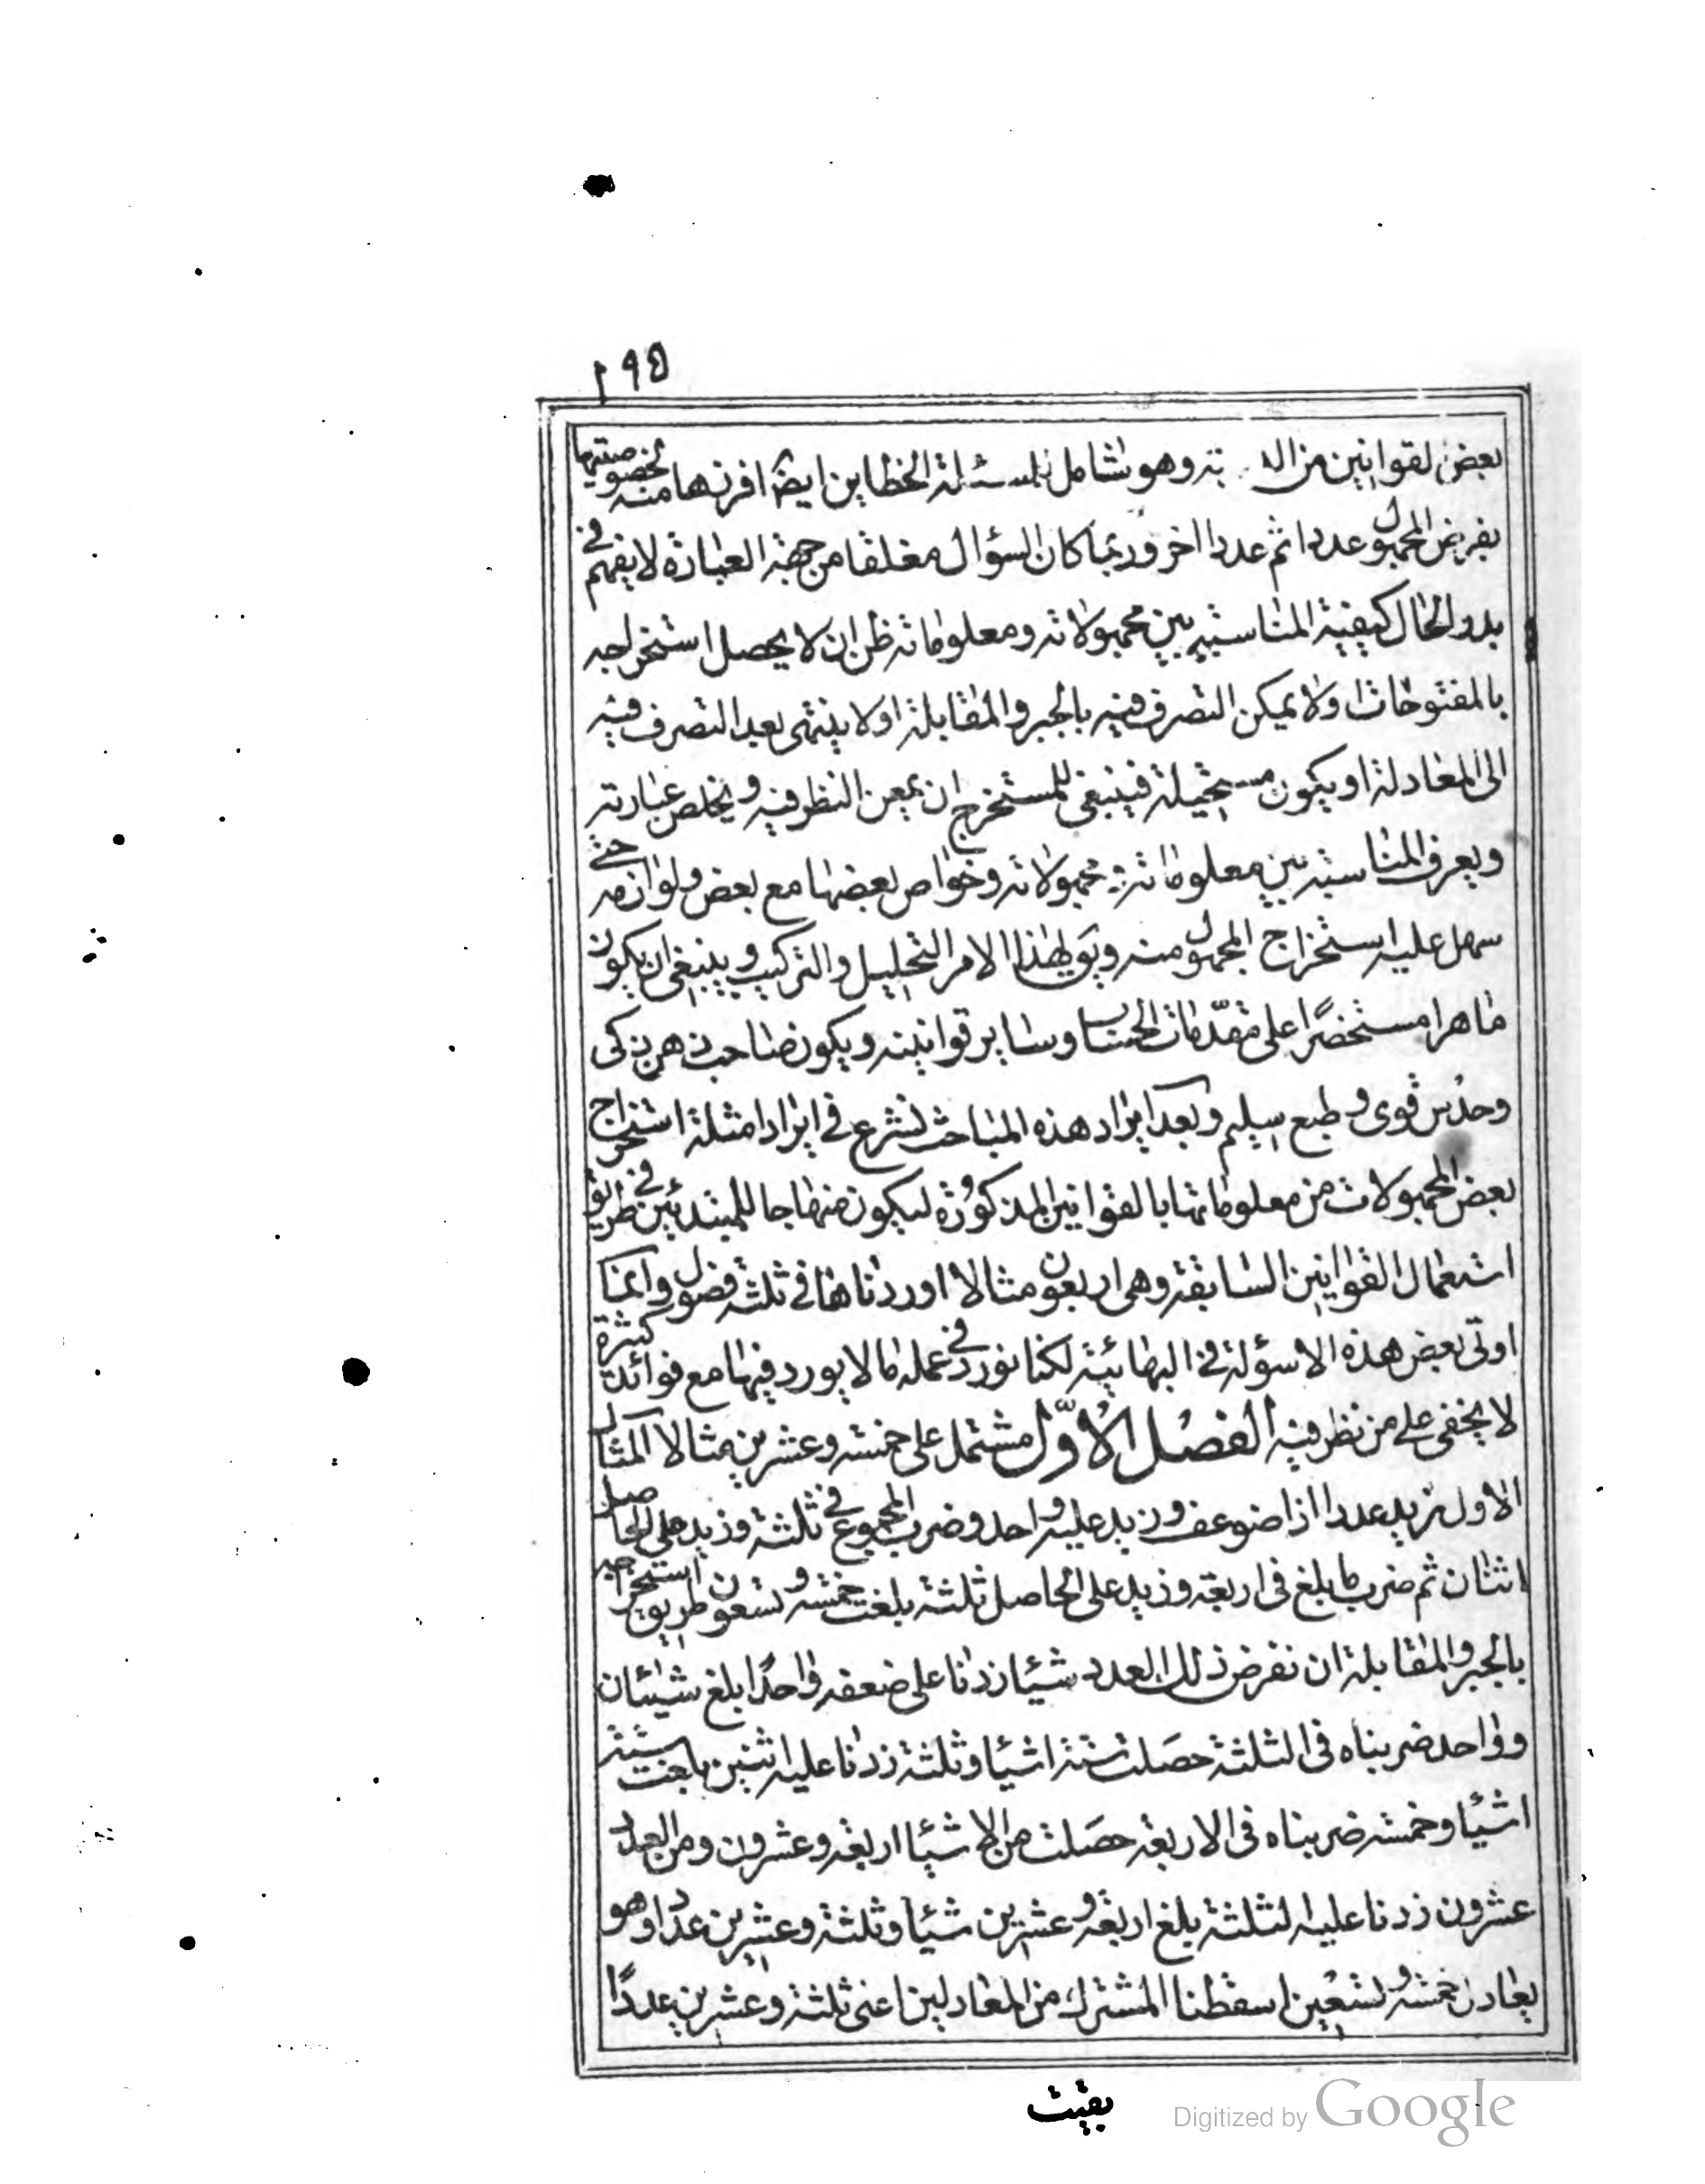 ١٩٥
بعض لقوانين من وهو شامل لمسئلة الخطاين ايضا افرزها منه لخصوصيتها
بفرض المجهول عددا ثم عددا اخر وربما كان السؤال مغلقا من جهة العبارة لا يفهم فى
بدو الحال كيفية المناسبة بين مجهولاته ومعلوماته ظن ان لا يحصل استخراجه
بالمفتوحات ولا يمكن التصرف فيه بالجبر والمقابلة او لا ينتهى بعد التصرف فيه
الى المعادلة او يكون مستحيلة فينبغى للمستخرج ان يمعن النظر فيه ويخلص عبارته
ويعرف المناسبة بين معلوماته ومجهولاته وخواص بعضها مع بعض ولوازمه حتى
سهل عليه استخراج المجهول منه وهذا الامر التحليل والتركيب وينبغى ان يكون
ماهرا مستحضرا على مقدمات الحساب وساير قوانينه ويكون صاحب ذهن ذكى
وحدس قوى وطبع سليم وبعد ايراد هذه المباحث نشرع فى ايراد امثلة استخراج
بعض المجهولات من معلوماتها بالقوانين المذكورة ليكون منهاجا للمبتدئين فى طريق
استعمال القوانين السابقة وهى اربعون مثالا اوردناها فى ثلثة فصول وانما
اوتى بعض هذه الاسؤلة فى البهائية لكنا نورد فى عمله ما لا يورد فيها مع فوائد كثيرة
لا يخفى على من نظر فيه الفصل الاول مشتمل على خمسة وعشرين مثالا المثال
الاول نريد عددا اذا ضوعف وزيد عليه واحد وضرب المجموع فى ثلثة وزيد على الحاصل
اثنان ثم ضرب ما بلغ فى اربعة وزيد على الحاصل ثلثة بلغت خمسة وتسعون طريق استخراجه
بالجبر والمقابلة ان نفرض ذلك العدد شيئا زدنا على ضعفه واحدا بلغ شيئان
وواحد ضربناه فى الثلثة حصلت ستة اشيا وثلثة زدنا عليه اثنين بلغت ستة
اشيا وخمسة ضربناه فى الاربعة حصلت من الاشيا اربعة وعشرون ومن العدد
عشرون زدنا عليه لثلثة بلغ اربعة وعشرين شيئا وثلثة وعشرين عددا وهو
يعادل خمسة وتسعين اسقطنا المشترك من المعادلين اعنى ثلثة وعشرين عددا
بقيت
Digitized by Google